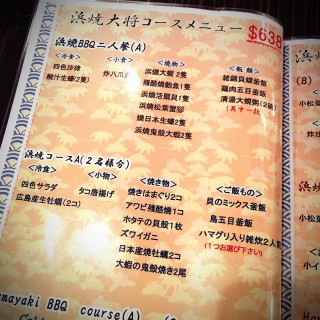 浜焼大将コースメニュー
$638
浜燒BBQ二人餐(A)
<冷食> <小食> <燒物> <飯類>
四色沙律 炸八爪 浜燒大蜆 2隻 雜錦貝螺釜飯
饒汁生蠔(2隻) 殘酷燒鮑魚1隻 鶏肉五目釜飯
浜燒活扇貝1隻 清湯大蜆粥(2碗)
浜燒松葉蟹腳 (其中一款)
燒日本生蠔2隻
浜燒鬼殻大蝦2隻
浜焼コースA(2名様分)
<冷食> <小物> <焼き物> <ご飯もの>
四色サラダ タコ唐揚げ 焼きはまぐり2コ 貝のミックス釜飯
広島産生牡蠣(2コ) アワビ残酷焼1コ 鳥五目釜飯
ホタテの貝殻1枚 ハマグリ入り雑炊2人前
ズワイガニ (1つお選び下さい)
日本産焼牡蠣2コ
大蝦の鬼殻焼き2尾
mayaki BBQ course(A)
(B)